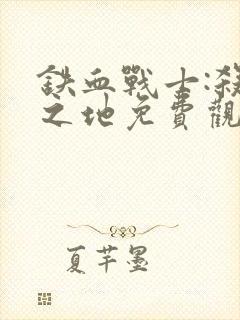 鉄血戰士:殺
之地免費觀
夏芊墨